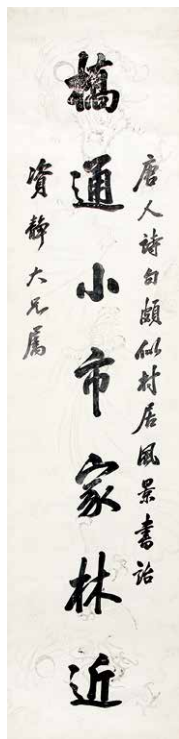 唐人詩句頗似村居風景書詒
橋通小市家林近
資靜大兄属